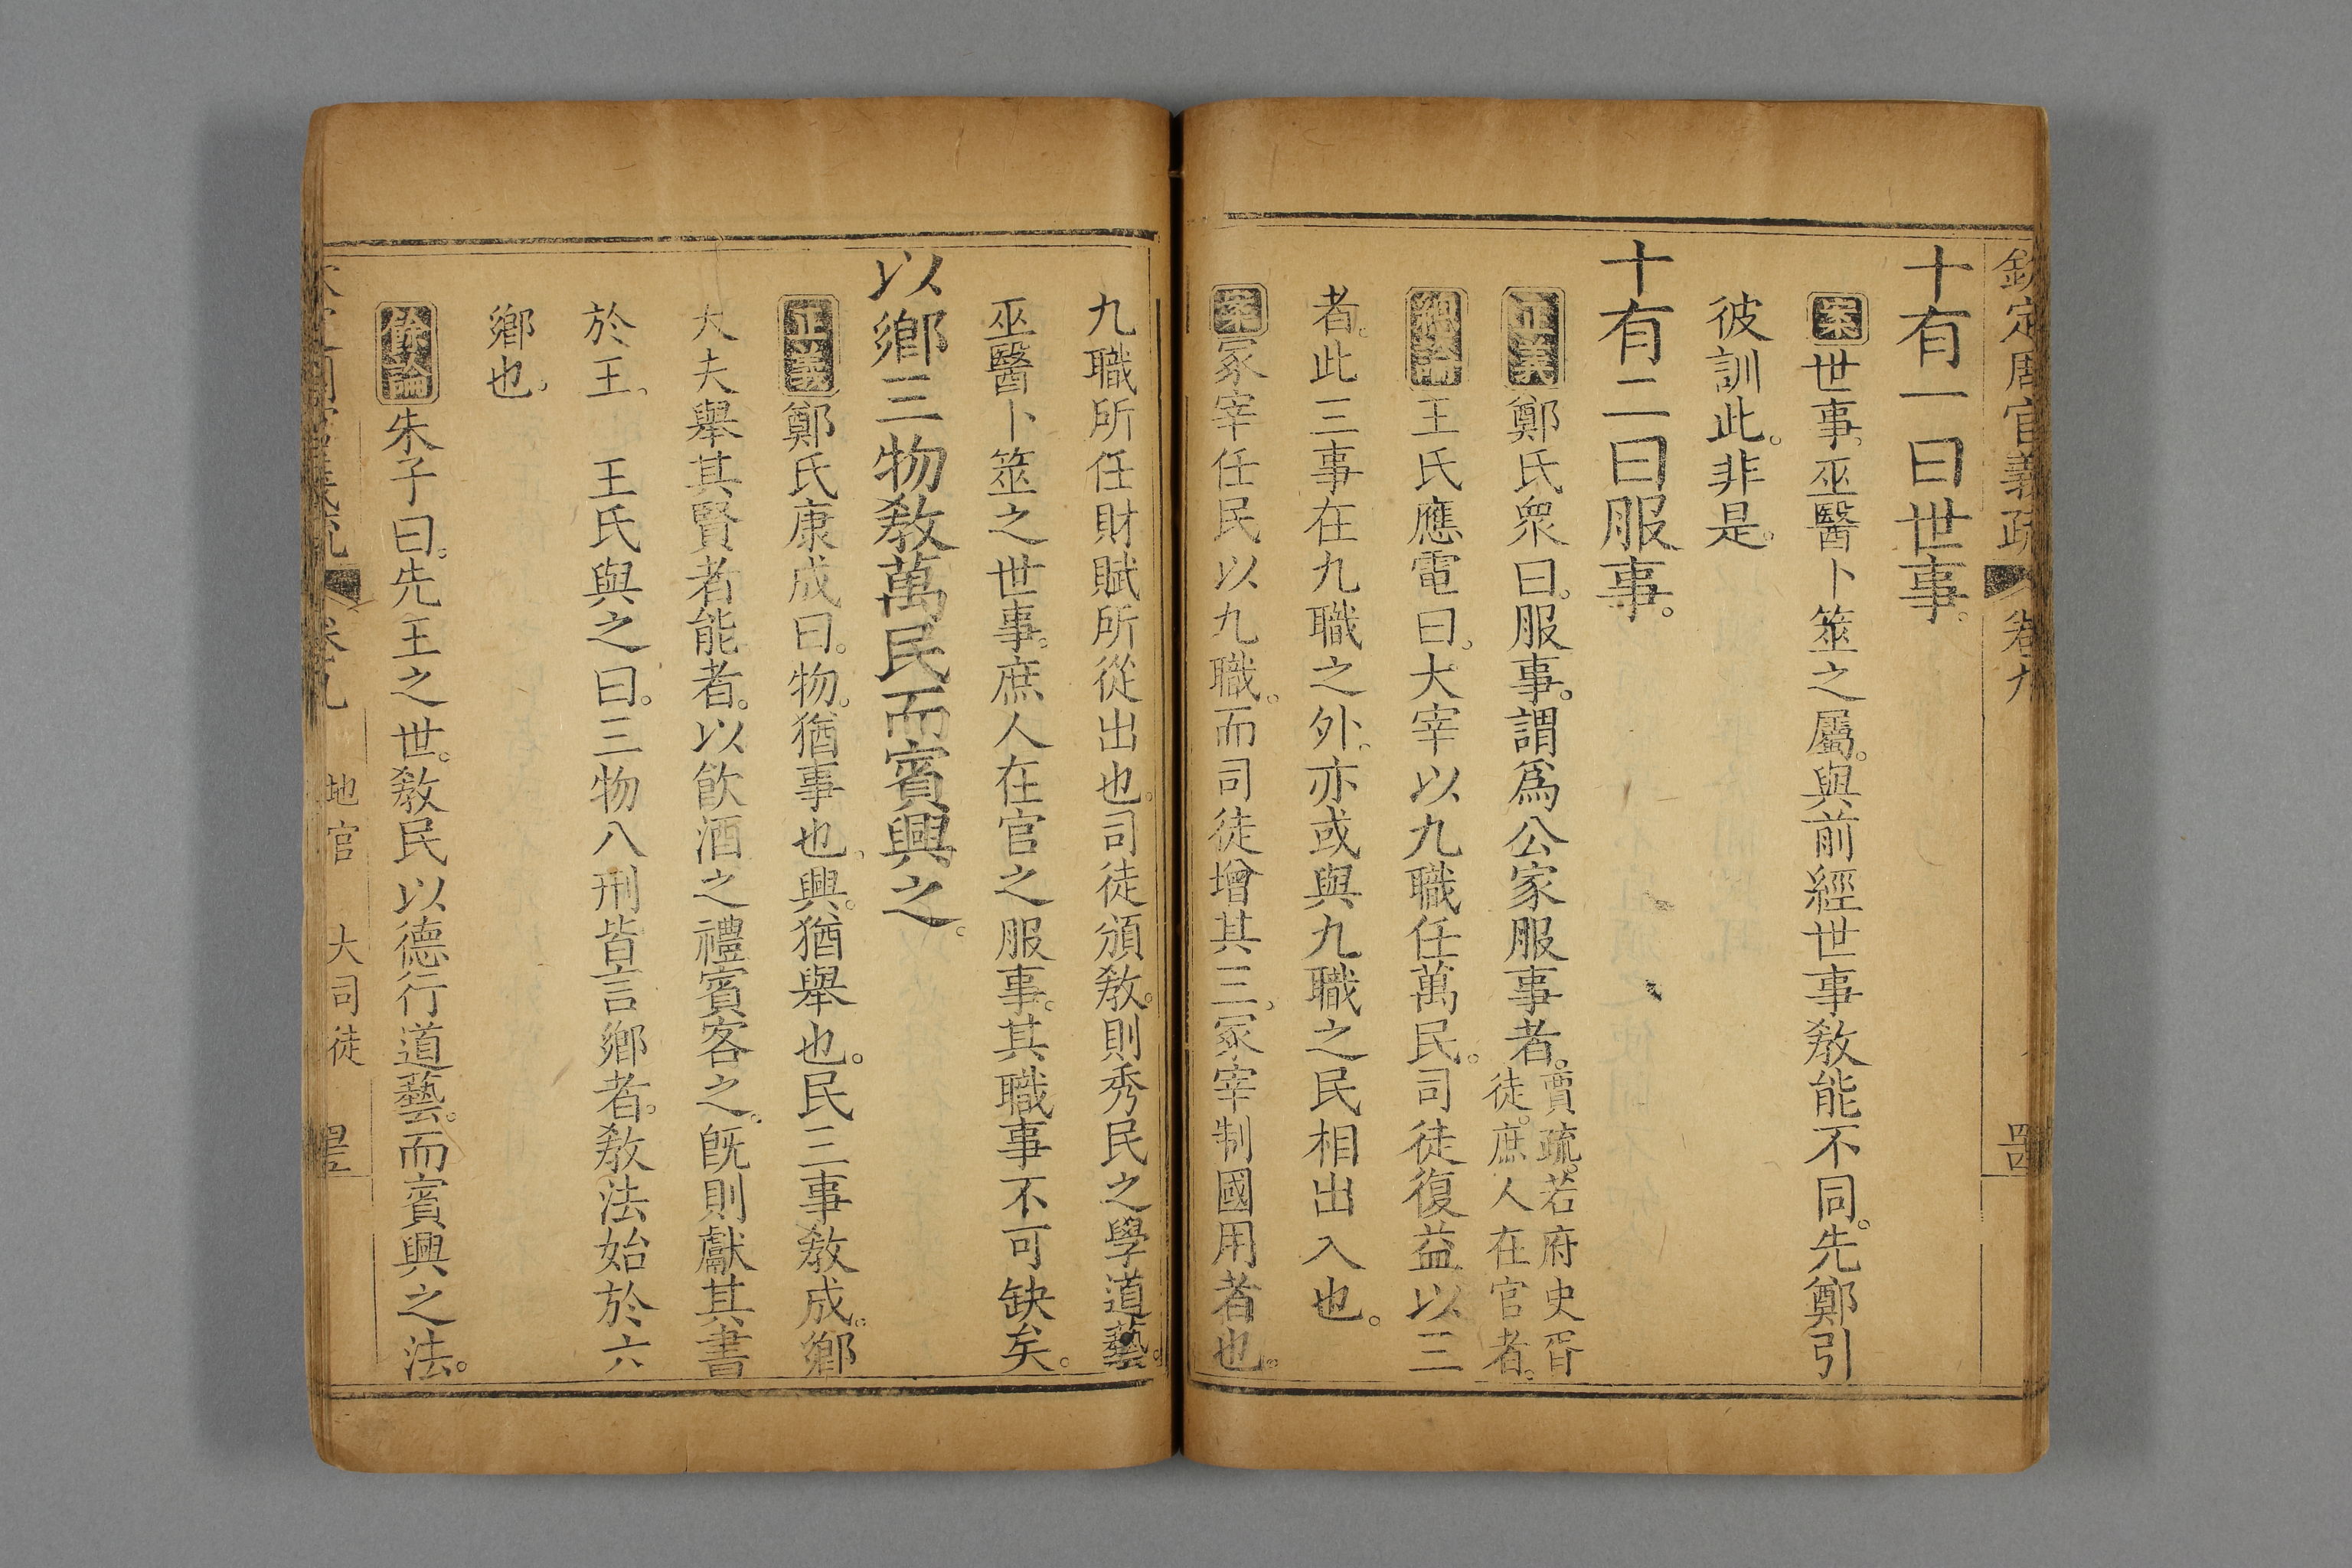 欽定周官義疏 卷九 四四
十有一曰世事。
案世事、巫醫卜筮之屬。與前經世事敎能不同。先鄭引
彼訓此。非是。
十有二曰服事。
正義鄭氏衆曰。服事。謂爲公家服事者。賈疏。若府史胥
徒。庶人在官者。
總論王氏應電曰。大宰以九職任萬民。司徒復益以三
者。此三事在九職之外。亦或與九職之民相出入也。
案冢宰任民以九職。而司徒增其三、冢宰制國用者也。
九職所任財賦所從出也。司徒頒敎。則秀民之學道藝。
巫醫卜筮之世事。庶人在官之服事。其職事不可缺矣。
以鄉三物敎萬民而賓興之。
正義鄭氏康成曰。物。猶事也、興。猶舉也。民三事敎成。鄉
大夫舉其賢者能者。以飮酒之禮賓客之。旣則獻其書
於王。 王氏與之曰。三物八刑皆言鄉者。敎法始於六
鄉也。
餘論朱子曰。先王之世。敎民以德行道藝。而賓興之法。
欽定周官義疏 卷九 地官 大司徒